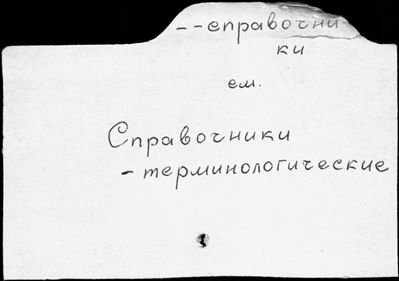 --справочни
ки
см.
Справочники
-терминологические